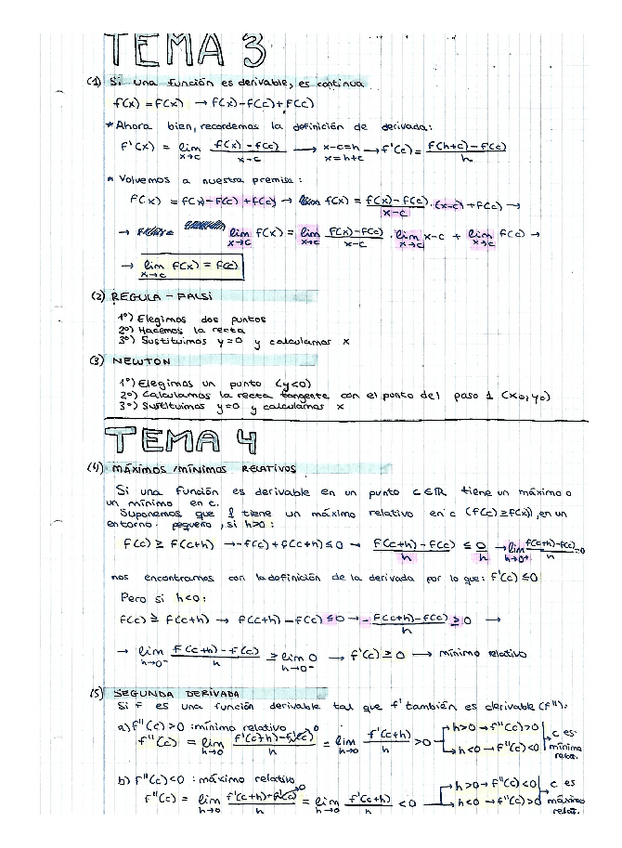 TEMA 3
(1) Si una función es derivable, es continua
f(x) = f(x) → f(x)-f(c)+f(c)
* Ahora bien, recordemos la definición de derivada:
f'(x) = lim x→c f(x)-f(c) / x-c → x-c=h x=h+c → f'(c) = f(h+c)-f(c) / h
* Volvemos a nuestra premisa:
f(x) = f(x)-f(c)+f(c) → lim f(x) = f(x)-f(c) / x-c · (x-c)+f(c) →
→ lim x→c f(x) = lim x→c f(x)-f(c) / x-c · lim x→c x-c + lim x→c f(c) →
→ lim x→c f(x) = f(c)
(2) REGULA-FALSI
1º) Elegimos dos puntos
2º) Hacemos la recta
3º) Sustituimos y=0 y calculamos x
(3) NEWTON
1º) Elegimos un punto (y<0)
2º) Calculamos la recta tangente con el punto del paso 1 (x0,y0)
3º) Sustituimos y=0 y calculamos x
TEMA 4
(4) MÁXIMOS/MÍNIMOS RELATIVOS
Si una función es derivable en un punto c∈ℝ tiene un máximo o
un mínimo en c.
Suponemos que f tiene un máximo relativo en c (f(c)≥f(x)), en un
entorno pequeño, si h>0:
f(c) ≥ f(c+h) → -f(c)+f(c+h)≤0 → f(c+h)-f(c) / h ≤ 0 / h → lim h→0+ f(c+h)-f(c) / h =0
nos encontramos con la definición de la derivada por lo que: f'(c) ≤0
Pero si h<0:
f(c) ≥ f(c+h) → f(c+h)-f(c) ≤0 → -f(c+h)-f(c) / h ≥ 0 →
→ lim h→0- f(c+h)-f(c) / h ≥ lim h→0- 0 → f'(c) ≥ 0 → mínimo relativo
(5) SEGUNDA DERIVADA
Si f es una función derivable tal que f' también es derivable (f''):
a) f''(c)>0 : mínimo relativo
f''(c) = lim h→0 f'(c+h)-f'(c) 0 / h = lim h→0 f'(c+h) / h >0 → h>0 → f''(c)>0 h<0 → f''(c)<0 c es mínimo relat.
b) f''(c)<0 : máximo relativo
f''(c) = lim h→0 f'(c+h)+f'(c) 0 / h = lim h→0 f'(c+h) / h <0 → h>0 → f''(c)<0 h<0 → f''(c)>0 c es máximo relat.